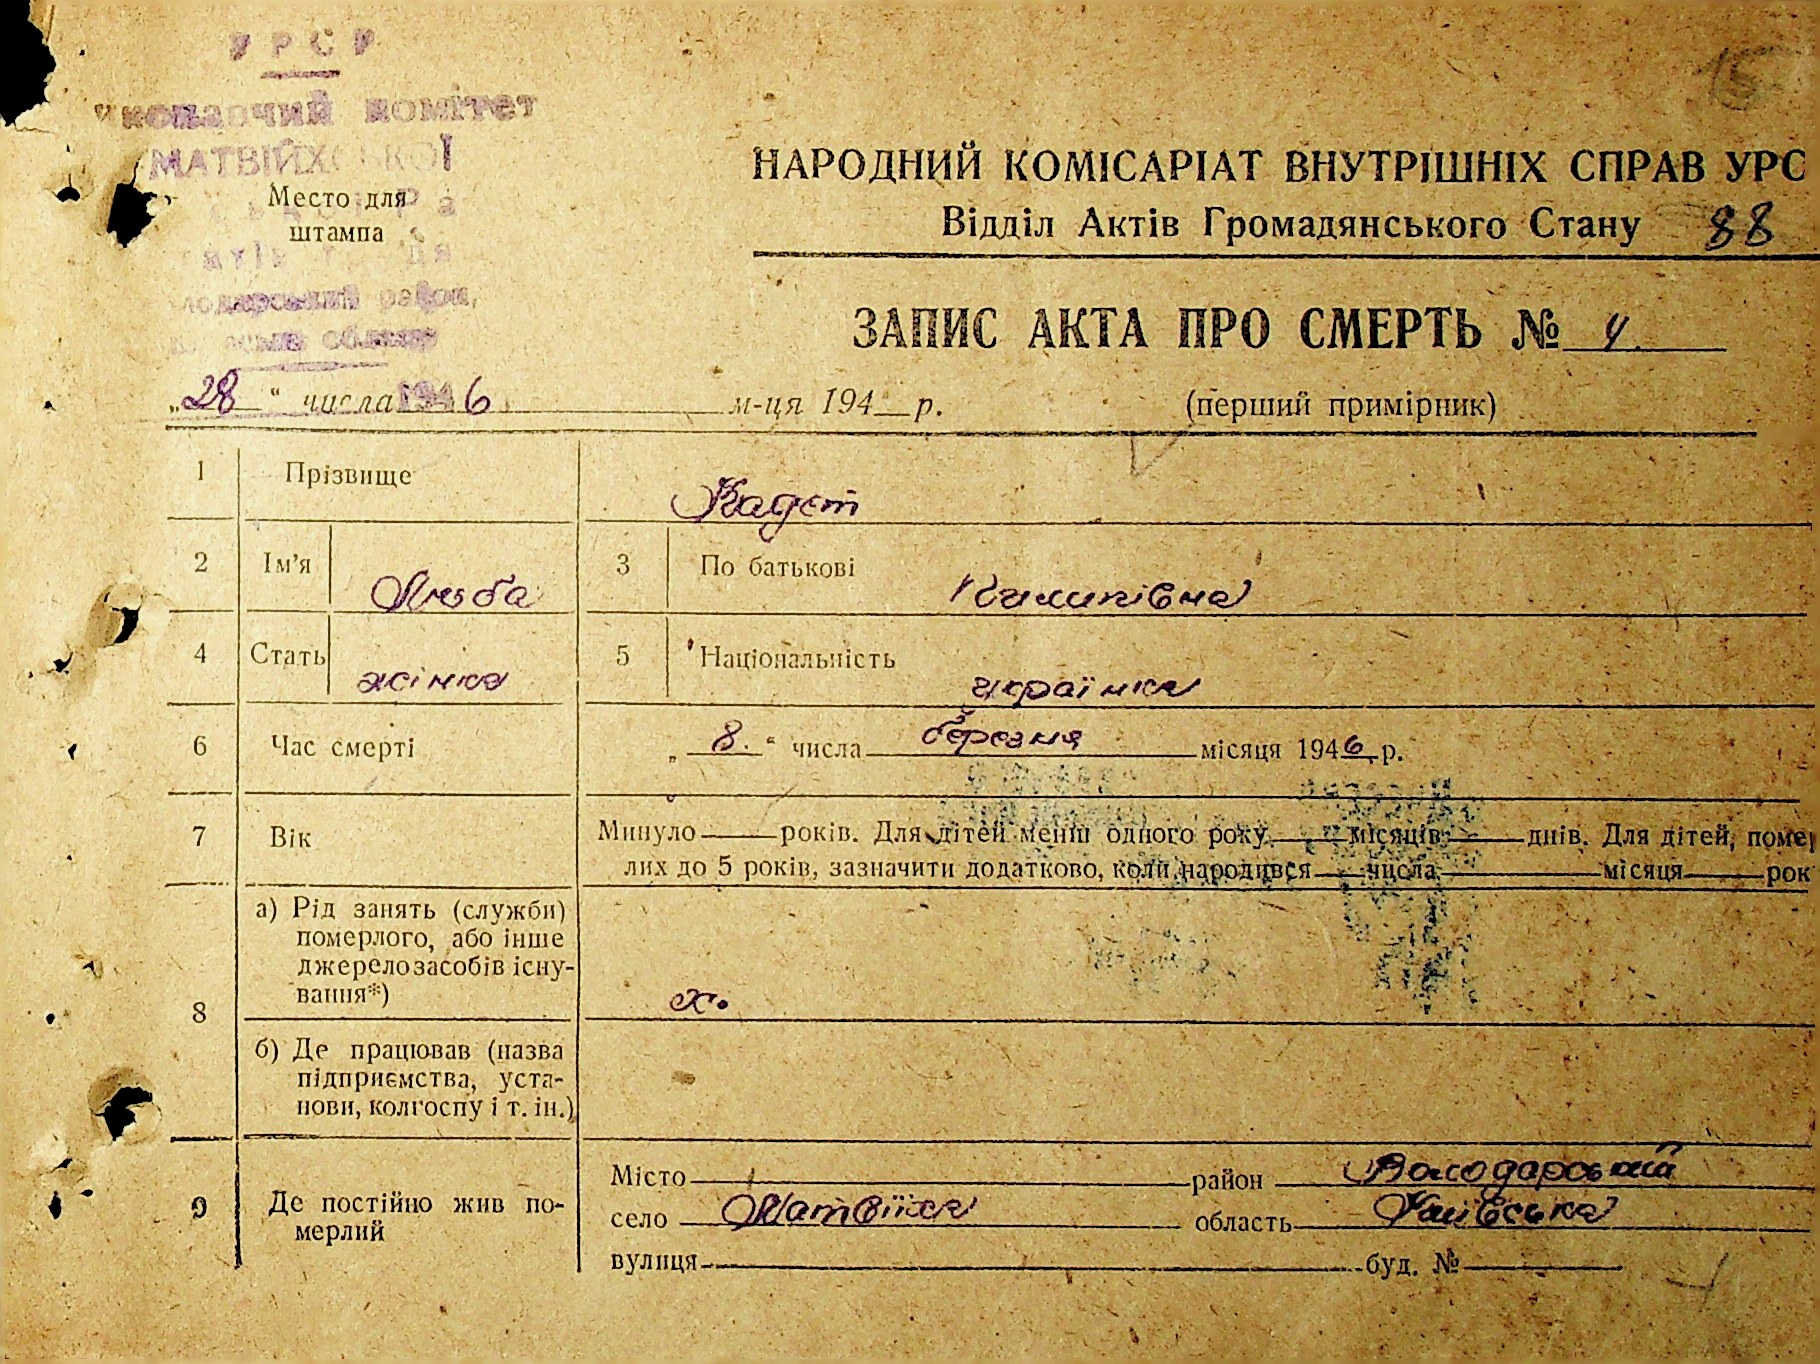 УРСР
комітет
15
НАРОДНИЙ КОМІСАРІАТ ВНУТРІШНІХ СПРАВ УРС
Место для
штампа
Відділ Актів Громадянського Стану 88
район,
ЗАПИС АКТА ПРО СМЕРТЬ № 4.
„28“ числа 1946 м-ця 194 р. (перший примірник)
1 Прізвище Кадет
2 Ім'я Люба 3 По батькові Пилипівна
4 Стать жінка 5 Національність українка
6 Час смерті „8.“ числа березня місяця 1946 р.
7 Вік Минуло років. Для дітей менш одного року місяців днів. Для дітей, помер
лих до 5 років, зазначити додатково, коли народився числа місяця рок
8 а) Рід занять (служби)
померлого, або інше
джерело засобів існу-
вання*) х.
б) Де працював (назва
підприємства, уста-
нови, колгоспу і т. ін.)
9 Де постійно жив по-
мерлий
Місто район Володарський
село Матвіїха область Київська
вулиця буд. №